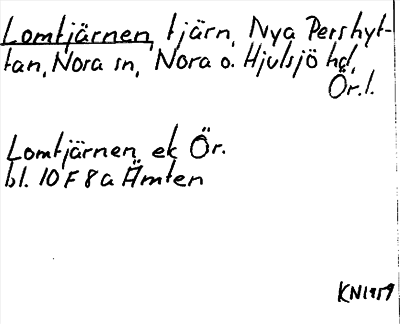 Lomtjärnen, tjärn, Nya Pershyt-
tan, Nora sn, Nora o. Hjulsjö hd,
Ör. l.
Lomtjärnen ek Ör.
bl. 10 F 8 a Ämten
KN1959